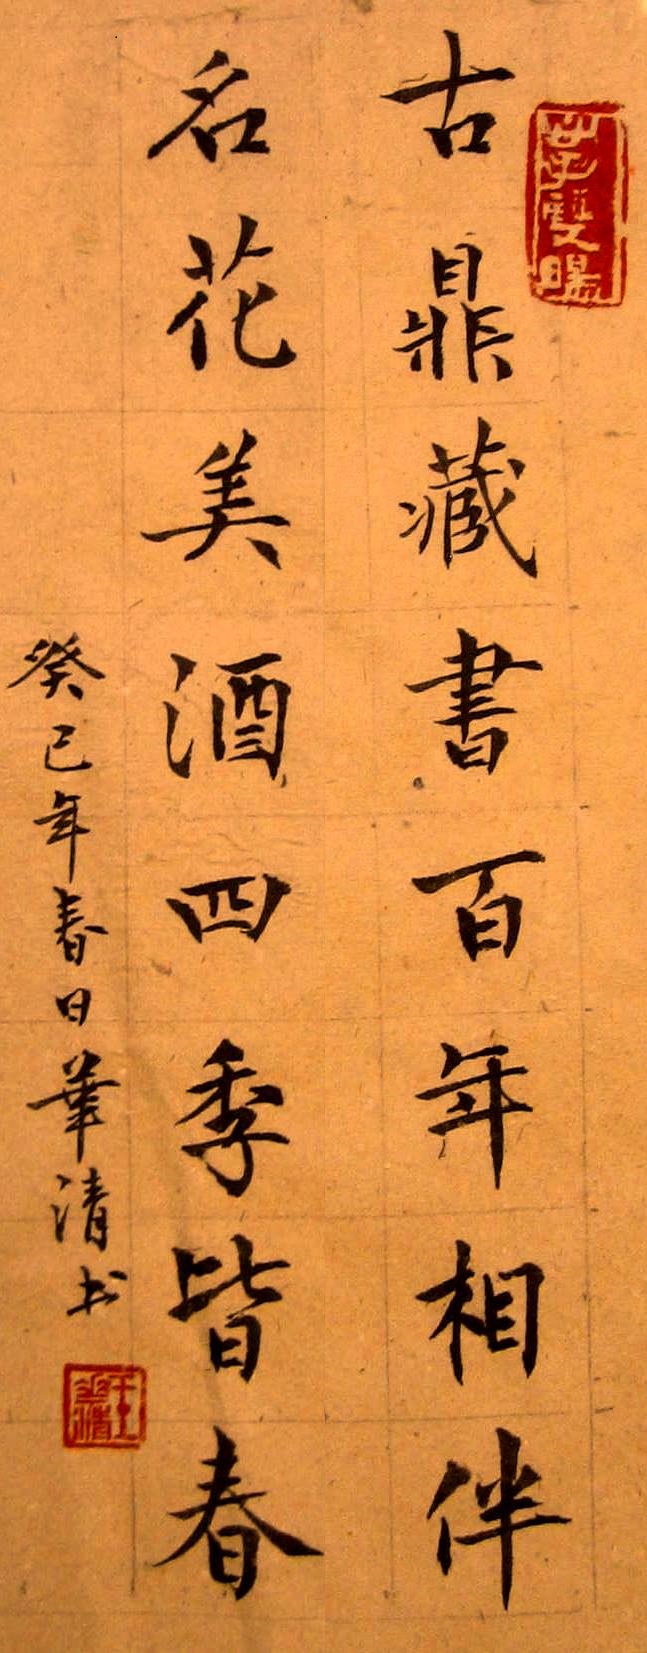 古鼎藏書百年相伴
名花美酒四季皆春
癸巳年春日華清书